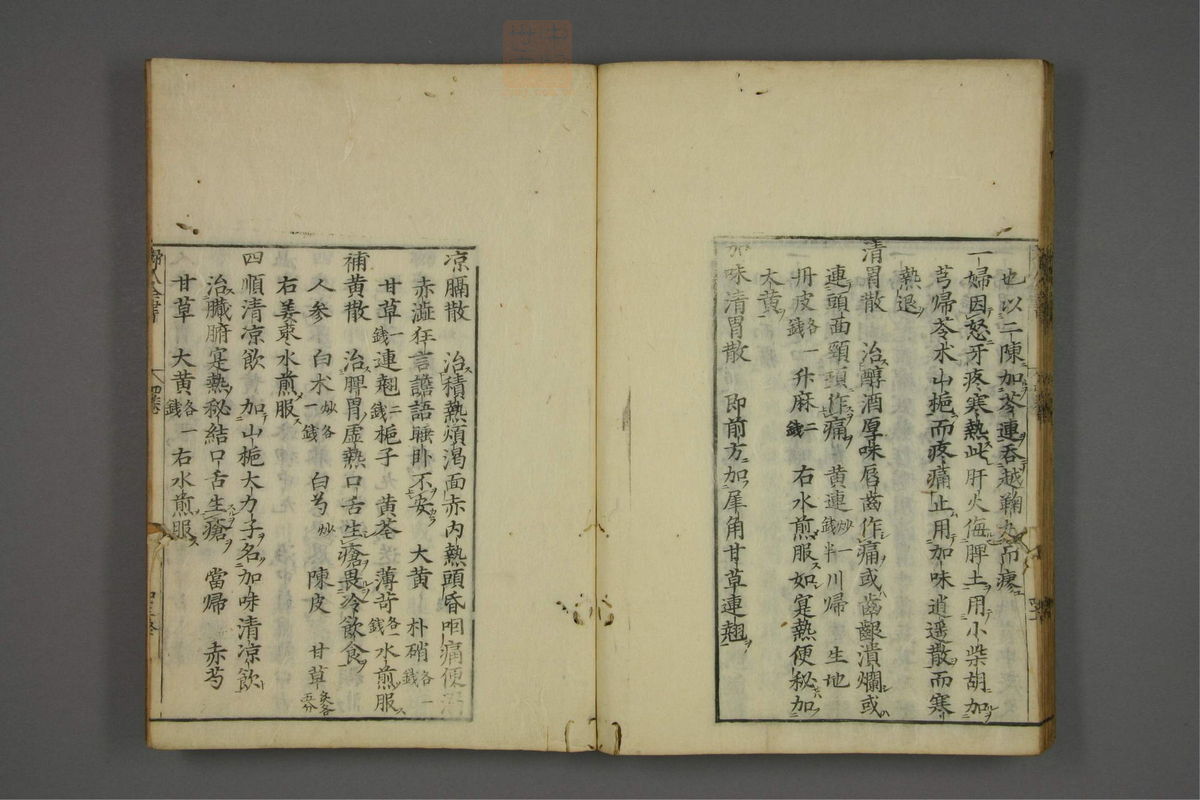 也以二陳加芩連吞越鞠丸而瘳
一婦因怒牙疼寒熱此肝火侮脾土用小柴胡加
芎歸苓朮山梔而疼痛止用加味逍遥散而寒
熱退
清胃散 治醇酒厚味唇齒作痛或齒齦潰爛或
連頭面頸項作痛 黃連炒一錢半川歸 生地
丹皮各一錢升麻二錢 右水煎服如実熱便秘加
大黃
加味清胃散 即前方加犀角甘草連翹
凉膈散 治積熱煩渇面赤内熱頭昏咽痛便
赤澁狂言譫語睡卧不安 大黃 朴硝各一錢
甘草一錢連翹二錢梔子 黃芩 薄苛各一錢水煎服
補黃散 治脾胃虛熱口舌生瘡畏冷飲食
人參 白朮炒各一錢 白芍炒 陳皮 甘草炙各五分
右姜棗水煎服
四順清凉飲 加山梔大力子名加味清凉飲
治臟腑実熱秘結口舌生瘡 當歸 赤芍
甘草 大黃各一錢右水煎服